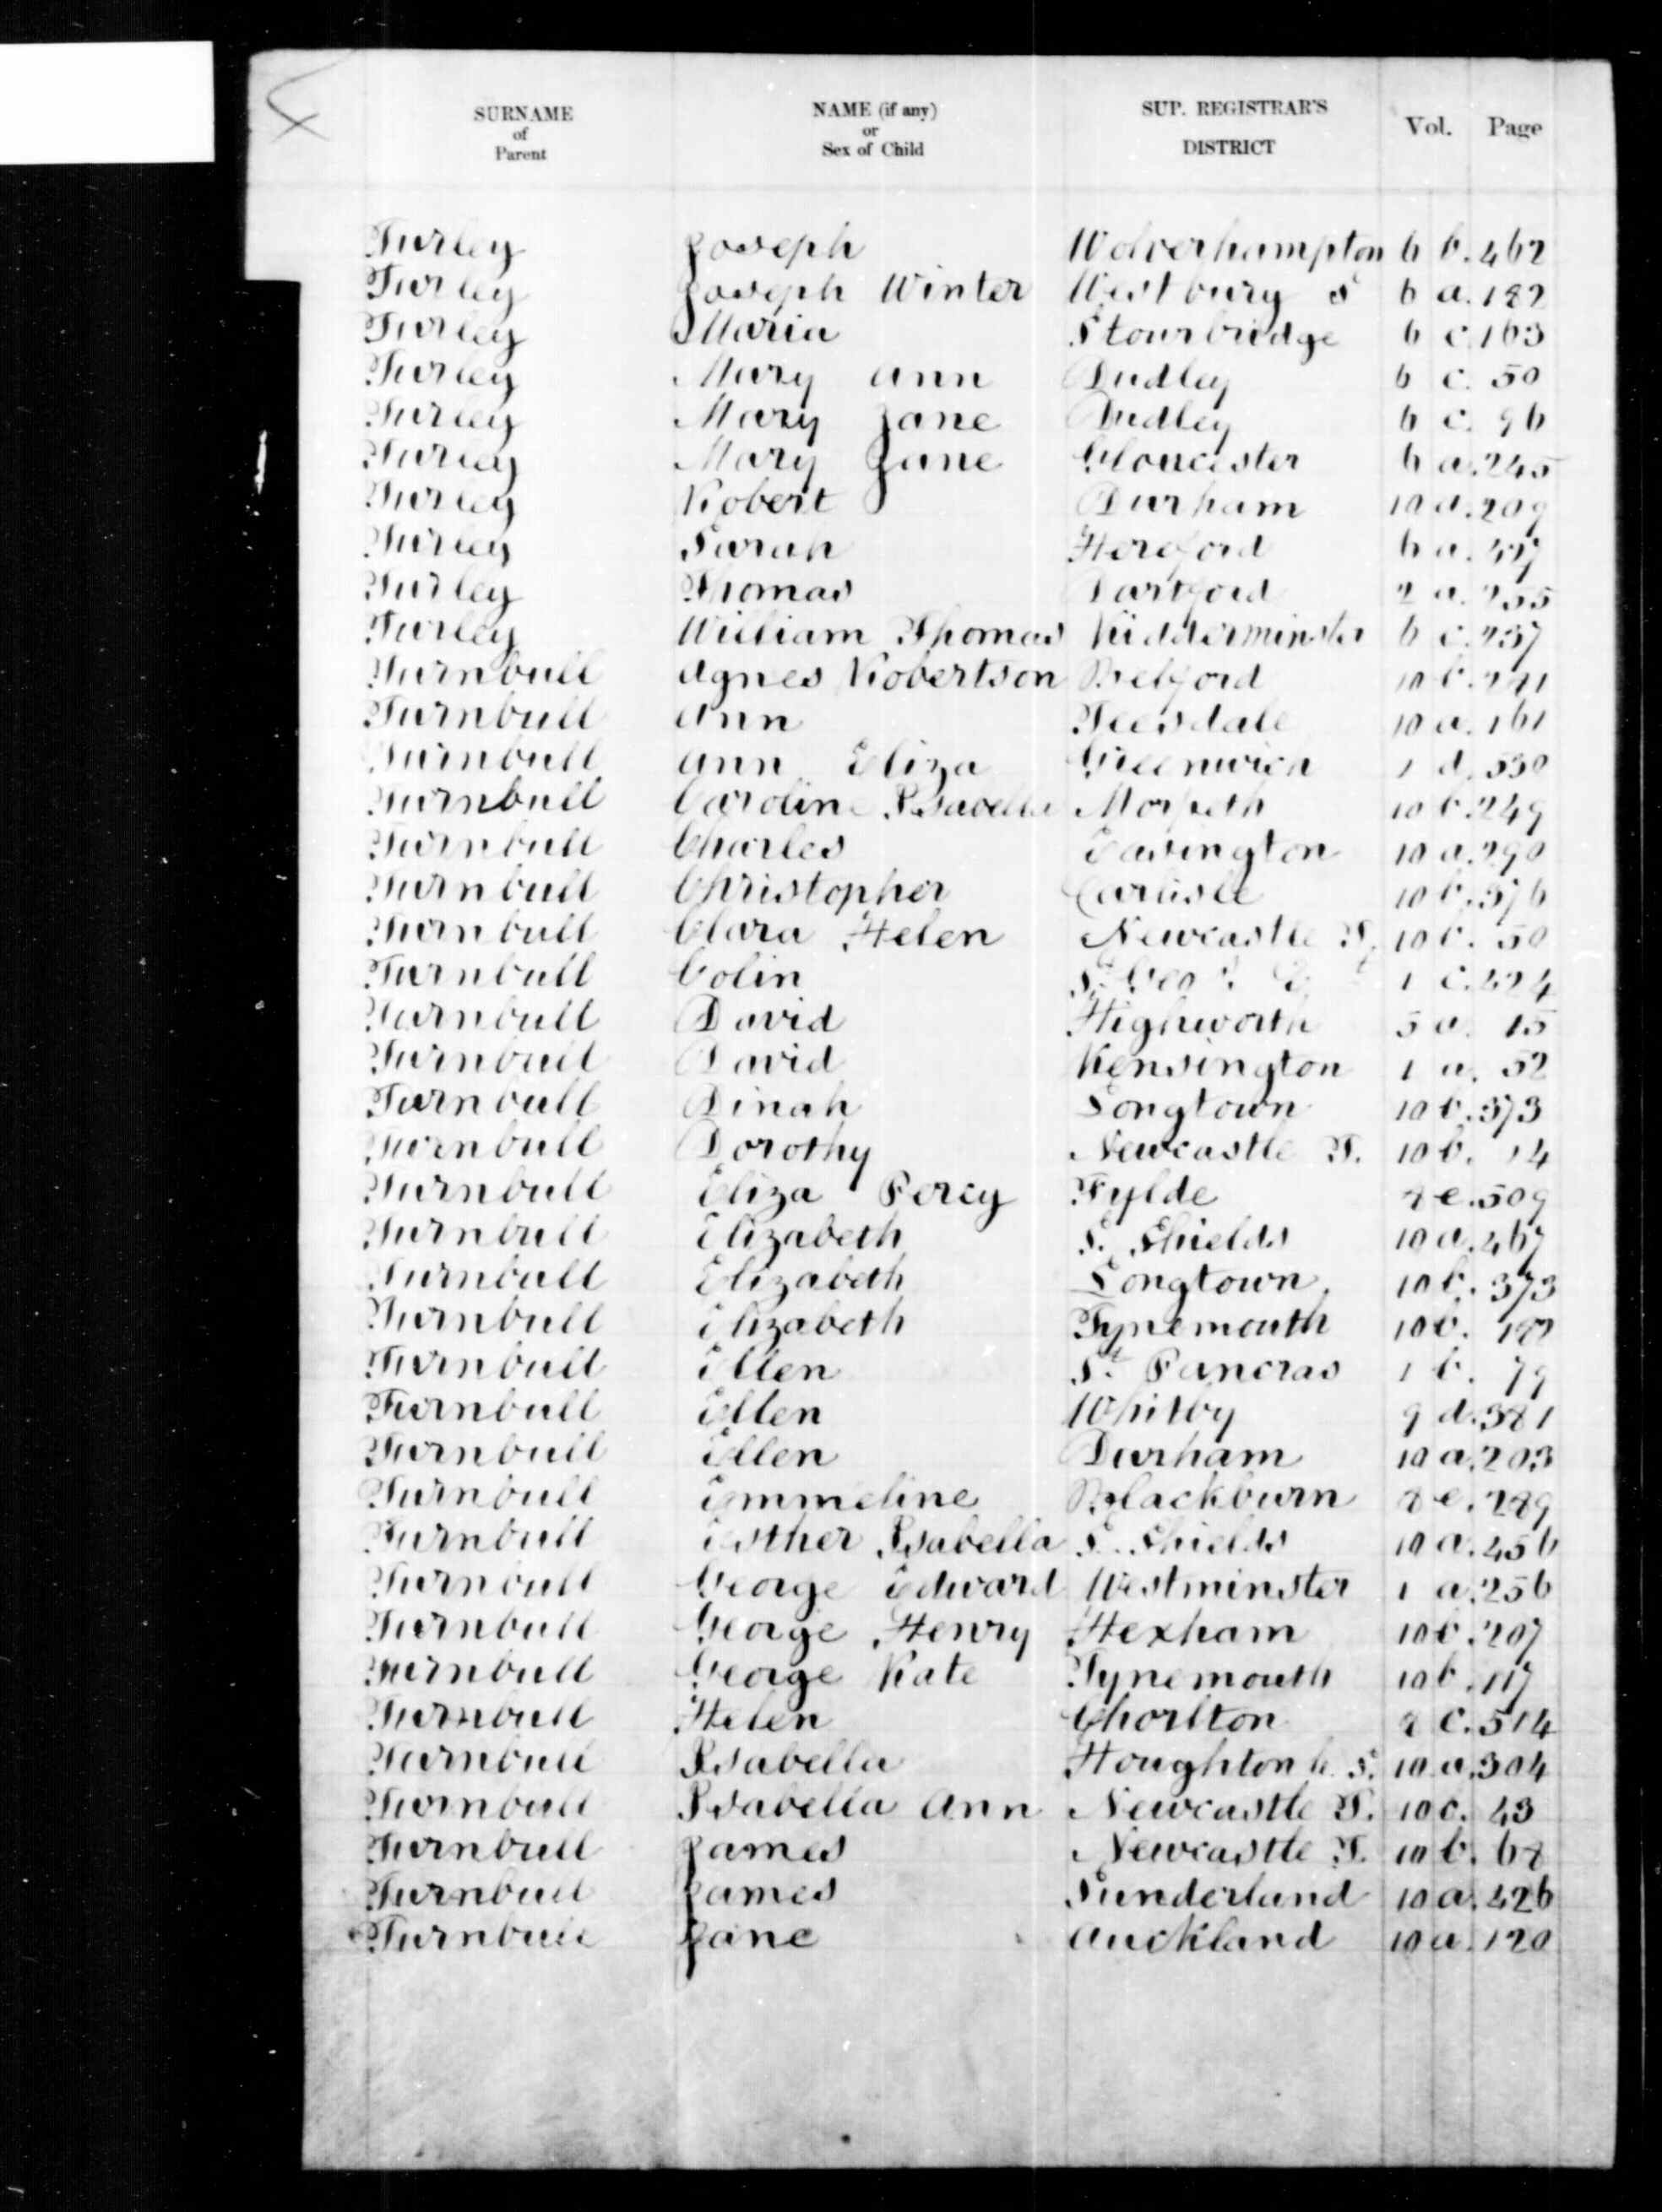 SURNAME of Parent NAME (if any) or Sex of Child SUP. REGISTRAR'S DISTRICT Vol. Page
Turley Joseph Wolverhampton 6 b. 462
Turley Joseph Winter Westbury S 6 a. 182
Turley Maria Stourbridge 6 c. 163
Turley Mary Ann Dudley 6 c. 50
Turley Mary Jane Dudley 6 c. 96
Turley Mary Jane Gloucester 6 a. 245
Turley Robert Durham 10 a. 209
Turley Sarah Hereford 6 a.
Turley Thomas Dartford 2 a. 255
Turley William Thomas Kidderminster 6 c. 237
Turnbull Agnes Robertson Belford 10 b.
Turnbull Ann Teesdale 10 a. 161
Turnbull Ann Eliza Greenwich 1 d. 530
Turnbull Caroline Isabella Morpeth 10 b. 249
Turnbull Charles Easington 10 a. 290
Turnbull Christopher Carlisle 10 b. 376
Turnbull Clara Helen Newcastle T. 10 b. 50
Turnbull Colin St Geo 1 c. 424
Turnbull David Highworth 5 a. 15
Turnbull David Kensington 1 a. 52
Turnbull Dinah Longtown 10 b. 373
Turnbull Dorothy Newcastle T. 10 b. 14
Turnbull Eliza Percy Fylde 8 e. 509
Turnbull Elizabeth S. Shields 10 a. 467
Turnbull Elizabeth Longtown. 10 b. 373
Turnbull Elizabeth Tynemouth 10 b.
Turnbull Ellen St Pancras 1 b. 79
Turnbull Ellen Whitby 9 d. 381
Turnbull Ellen Durham 10 a. 203
Turnbull Emmeline Blackburn 8 e. 289
Turnbull Esther Isabella S. Shields 10 a. 456
Turnbull George Edward Westminster 1 a. 256
Turnbull George Henry Hexham 10 b. 207
Turnbull George Kate Tynemouth 10 b. 117
Turnbull Helen Chorlton 8 c. 514
Turnbull Isabella Houghton le S. 10 a. 304
Turnbull Isabella Ann Newcastle T. 10 b. 43
Turnbull James Newcastle T. 10 b. 68
Turnbull James Sunderland 10 a. 426
Turnbull Jane Auckland 10 a. 120